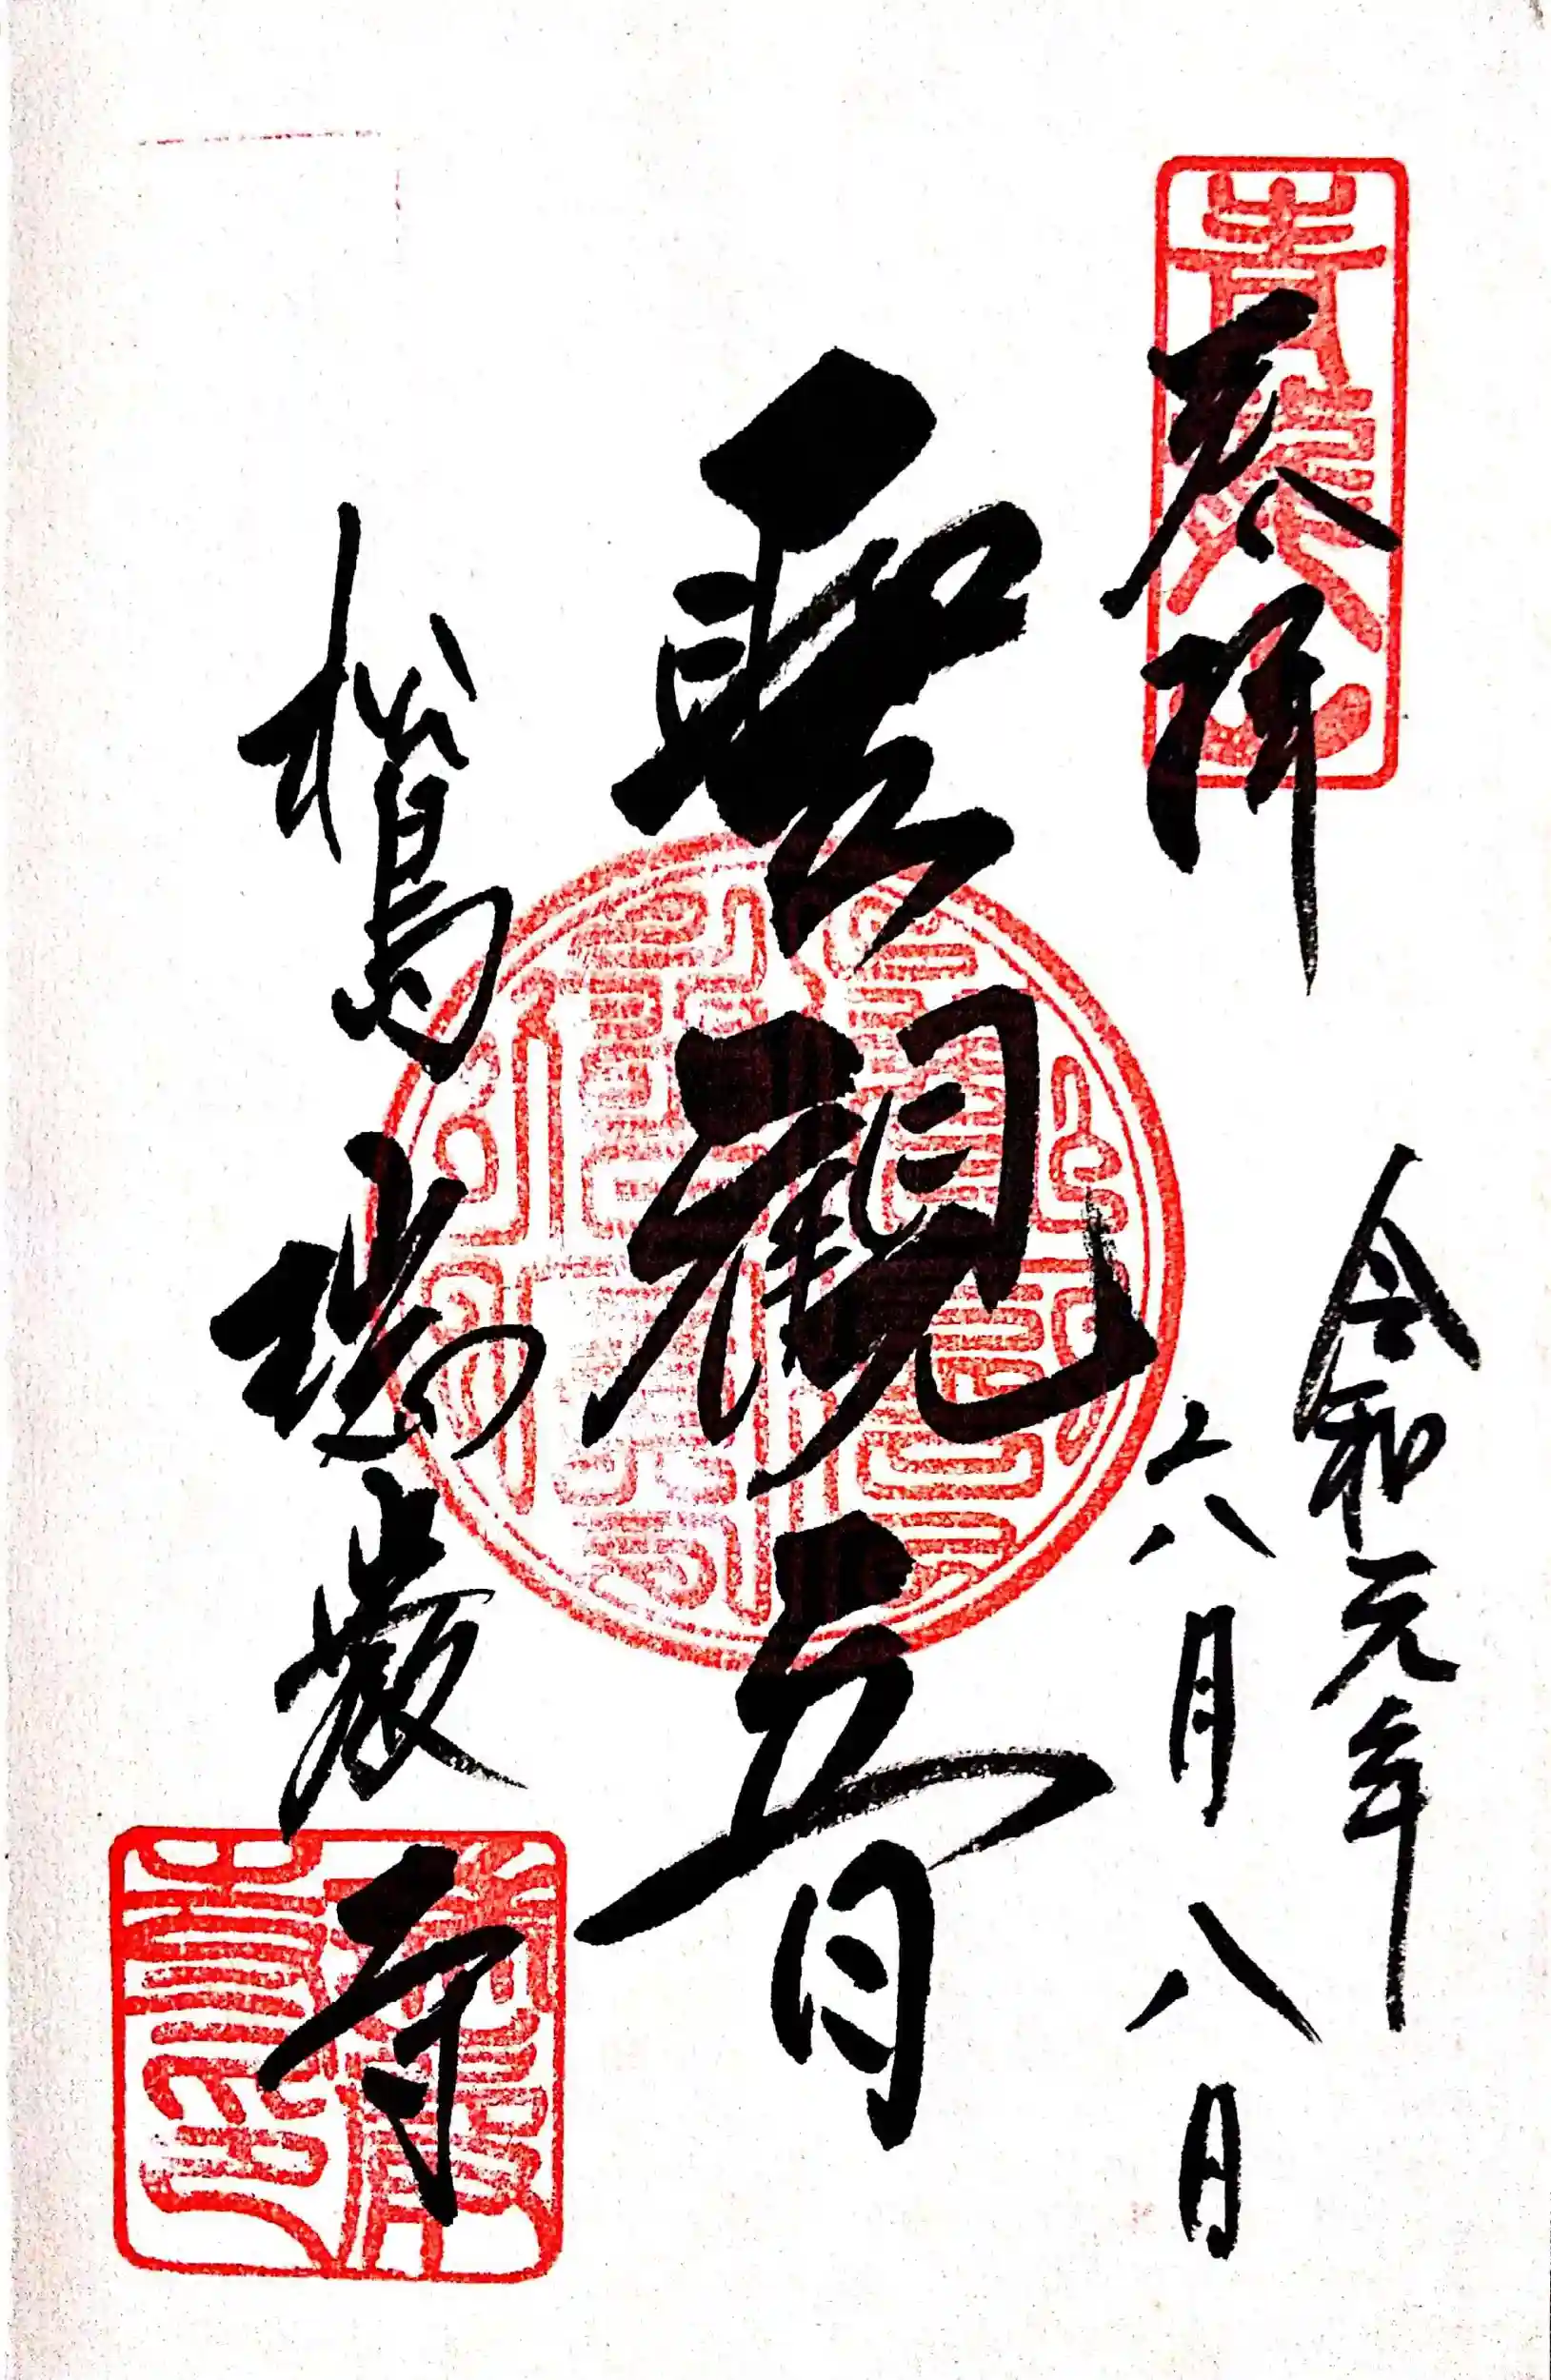 青龍山
奉拝
令和元年
六月八日
聖観音
松島瑞巌寺